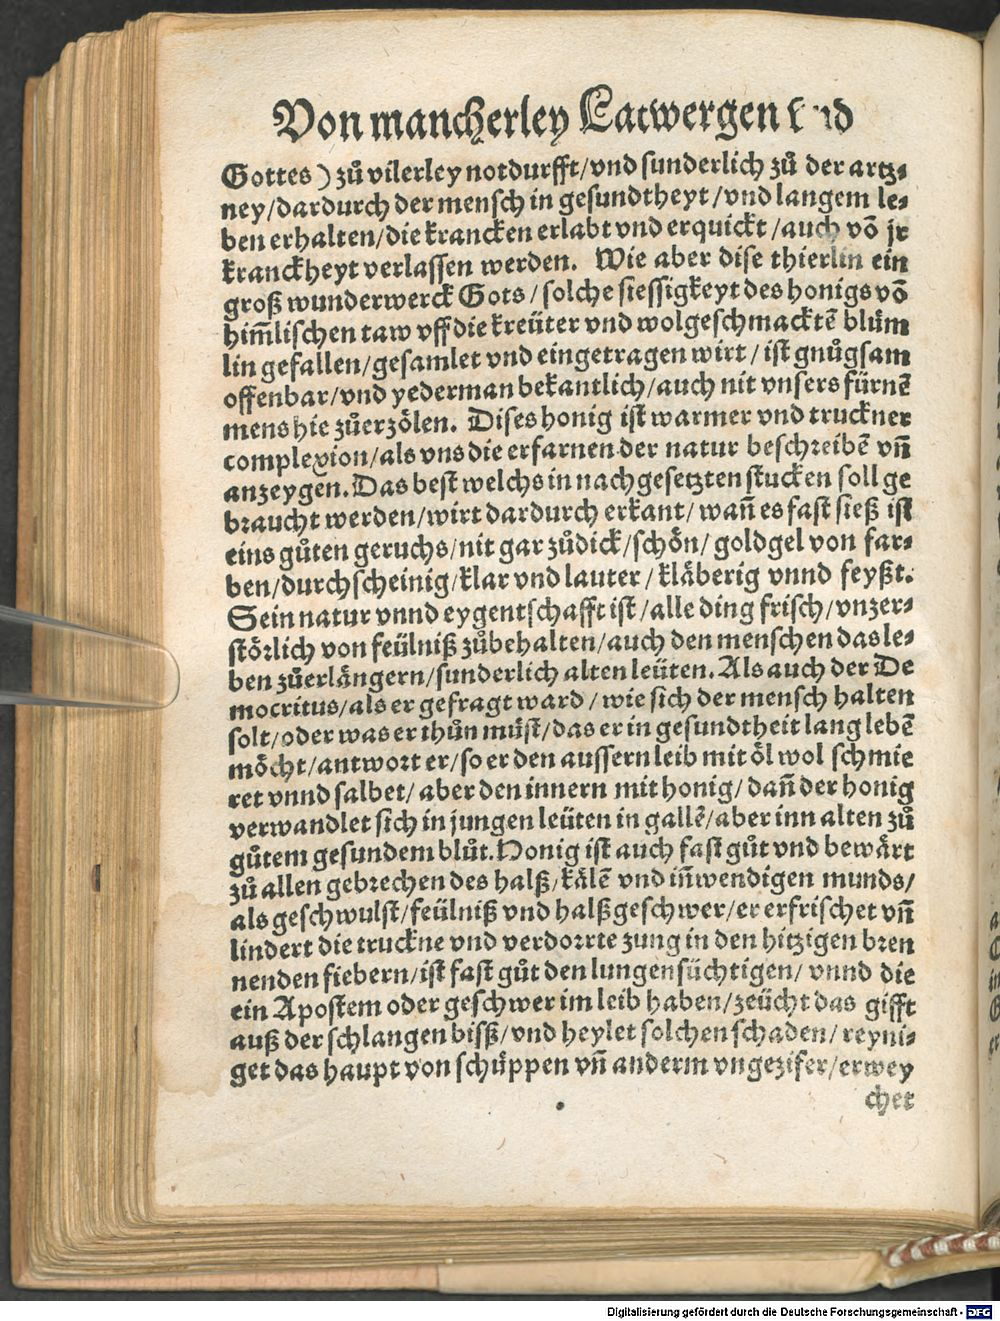 Von mancherley Latwergen
Gottes) zů vilerley notdurfft/vnd sunderlich zů der artz⸗
ney/dardurch der mensch in gesundtheyt/vnd langem le⸗
ben erhalten/die krancken erlabt vnd erquickt/auch võ jr
kranckheyt verlassen werden. Wie aber dise thierlin ein
groß wunderwerck Gots/solche siessigkeyt des honigs võ
him̃lischen taw vff die kreüter vnd wolgeschmacktẽ blům
lin gefallen/gesamlet vnd eingetragen wirt/ist gnůgsam
offenbar/vnd yederman bekantlich/auch nit vnsers fürnẽ
mens hie zůerzölen. Dises honig ist warmer vnd truckner
complexion/als vns die erfarnen der natur beschreibẽ vñ
anzeygen. Das best welchs in nachgesetzten stucken soll ge
braucht werden/wirt dardurch erkant/wañ es fast sieß ist
eins gůten geruchs/nit gar zůdick/schön/goldgel von far⸗
ben/durchscheinig/klar vnd lauter/kläberig vnnd feyßt.
Sein natur vnnd eygentschafft ist/alle ding frisch/vnzer⸗
störlich von feülniß zůbehalten/auch den menschen das le⸗
ben zůerlängern/sunderlich alten leüten. Als auch der De
mocritus/als er gefragt ward/wie sich der mensch halten
solt/oder was er thůn müst/das er in gesundtheit lang lebẽ
möcht/antwort er/so er den aussern leib mit öl wol schmie
ret vnnd salbet/aber den innern mit honig/dañ der honig
verwandlet sich in jungen leüten in gallẽ/aber inn alten zů
gůtem gesundem blůt. Honig ist auch fast gůt vnd bewärt
zů allen gebrechen des halß/kälẽ vnd iñwendigen munds/
als geschwulst/feülniß vnd halßgeschwer/er erfrischet vñ
lindert die truckne vnd verdorrte zung in den hitzigen bren
nenden fiebern/ist fast gůt den lungensüchtigen/vnnd die
ein Apostem oder geschwer im leib haben/zeücht das gifft
auß der schlangen bissß/vnd heylet solchen schaden/reyni⸗
get das haupt von schüppen vñ anderm vngezifer/erwey
chet
Digitalisierung gefördert durch die Deutsche Forschungsgemeinschaft - DFG